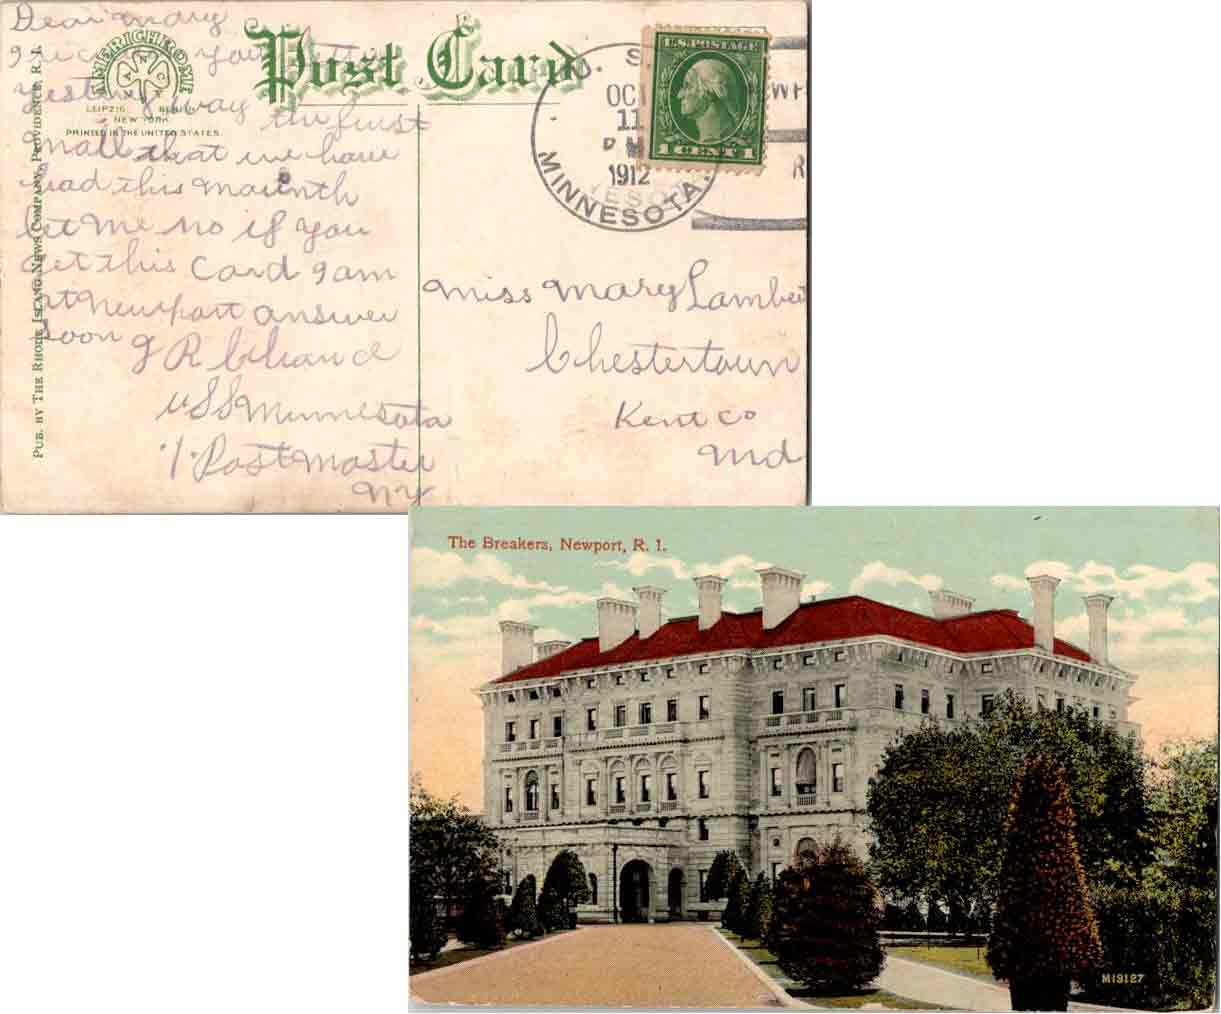 Dear Mary
I recieved your letter
yesterday the first
Mail that we have
had this Mounth
let me no if you
get this Card I am
at Newport answer
soon
J R Chance
USS Minnesota
./. Postmaster
NY
AMERICHROME
LEIPZIG BERLIN
NEW YORK
PRINTED IN THE UNITED STATES.
PUB. BY THE RHODE ISLAND NEWS COMPANY, PROVIDENCE, R. I.
Post Card
U. S. S.
OCT
11
P M
1912
MINNESOTA.
U.S. POSTAGE
1 CENT 1
Miss Mary Lambert
Chestertown
Kent Co
Md
The Breakers, Newport, R. I.
M19127